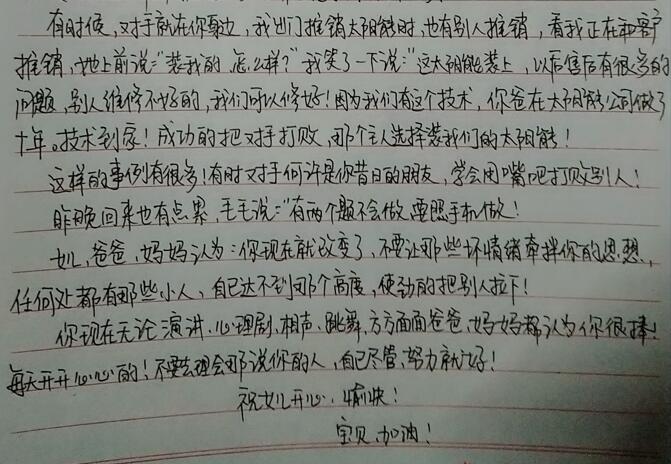 有时候,对手就在你身边,我出门推销太阳能时,也有别人推销,看我正在和客户
推销,她上前说:"装我的,怎么样?"我笑了一下说:"这太阳能装上,以后售后有很多的
问题,别人维修不好的,我们可以修好!因为我们有这个技术,你爸在太阳能公司做了
十年。技术到家!成功的把对手打败,那个主人选择装我们的太阳能!
这样的事例有很多!有时对手何许是你昔日的朋友,学会用嘴吧打败别人!
昨晚回来也有点累,毛毛说:"有两个题不会做,要照手机做!
女儿,爸爸、妈妈认为:你现在就改变了,不要让那些坏情绪牵拌你的思想,
任何处都有那些小人,自己达不到那个高度,使劲的把别人拉下!
你现在无论演讲、心理剧、相声、跳舞、方方面面爸爸、妈妈都认为你很棒!
每天开开心心的!不要去理会那说你的人,自己尽管努力就好!
祝女儿开心、愉快!
宝贝、加油!